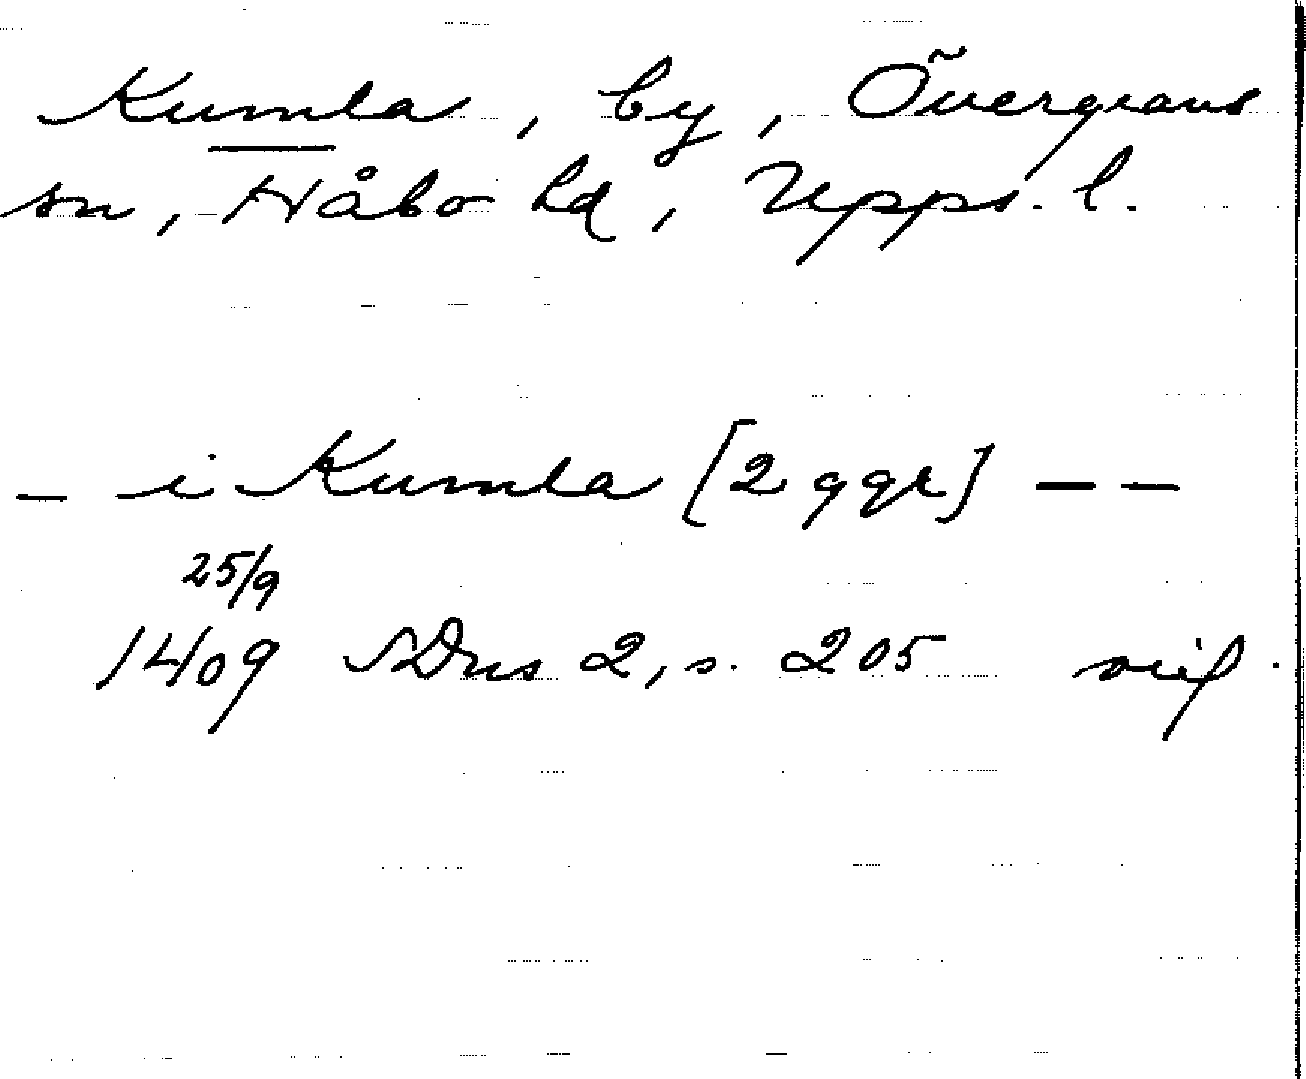 Kumla, by, Övergrans
sn, Håbo hd, Upps. l.
- i Kumla [2 ggr] - -
25/9
1409 SDns 2, s. 205